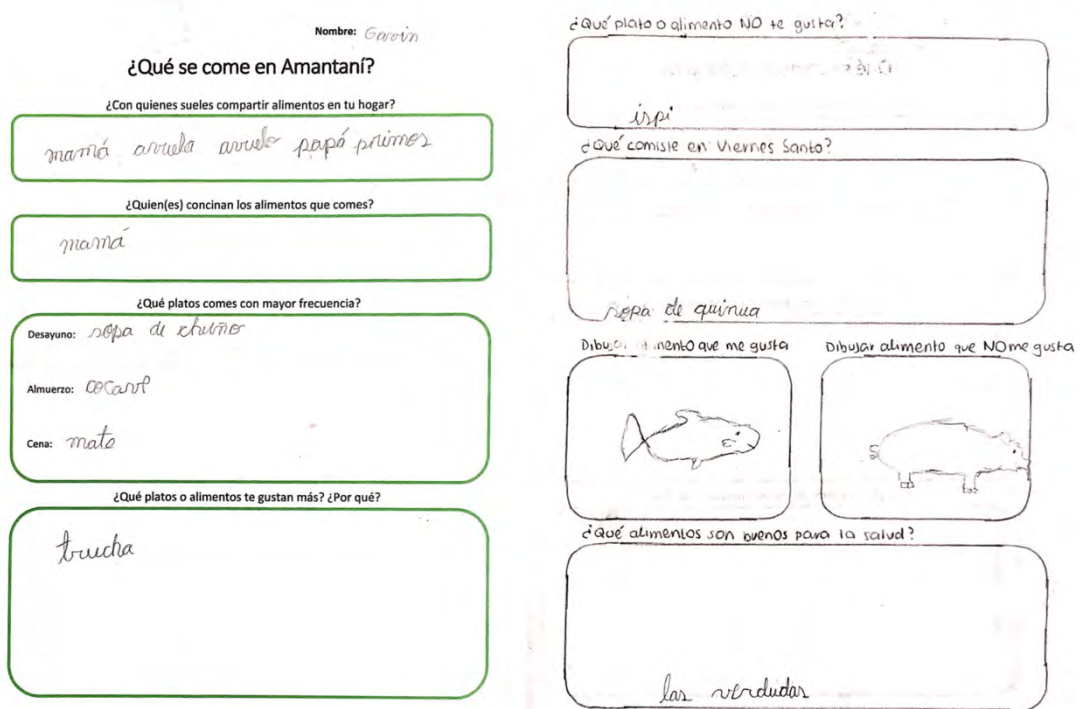 Nombre: Gavin
¿Qué se come en Amantaní?
¿Con quienes sueles compartir alimentos en tu hogar?
mamá avuela avuelo papá primos
¿Quien(es) concinan los alimentos que comes?
mamá
¿Qué platos comes con mayor frecuencia?
Desayuno: sopa de chuño
Almuerzo: cocavi
Cena: mate
¿Qué platos o alimentos te gustan más? ¿Por qué?
trucha
¿Qué plato o alimento NO te gusta?
ispi
¿Qué comiste en Viernes Santo?
sopa de quinua
Dibujar que me gusta
Dibujar alimento que NO me gusta
¿Qué alimentos son buenos para la salud?
las verdudas